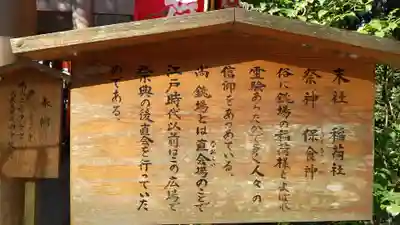 末社 稲荷社
祭神 保食神
俗に銚場の稲荷様とよばれ
霊験あらたかで多く人々の
信仰をあつめている。
尚 銚場とは直会場のことで
江戸時代以前はこの広場で
祭典の後直会を行っていた
のである。